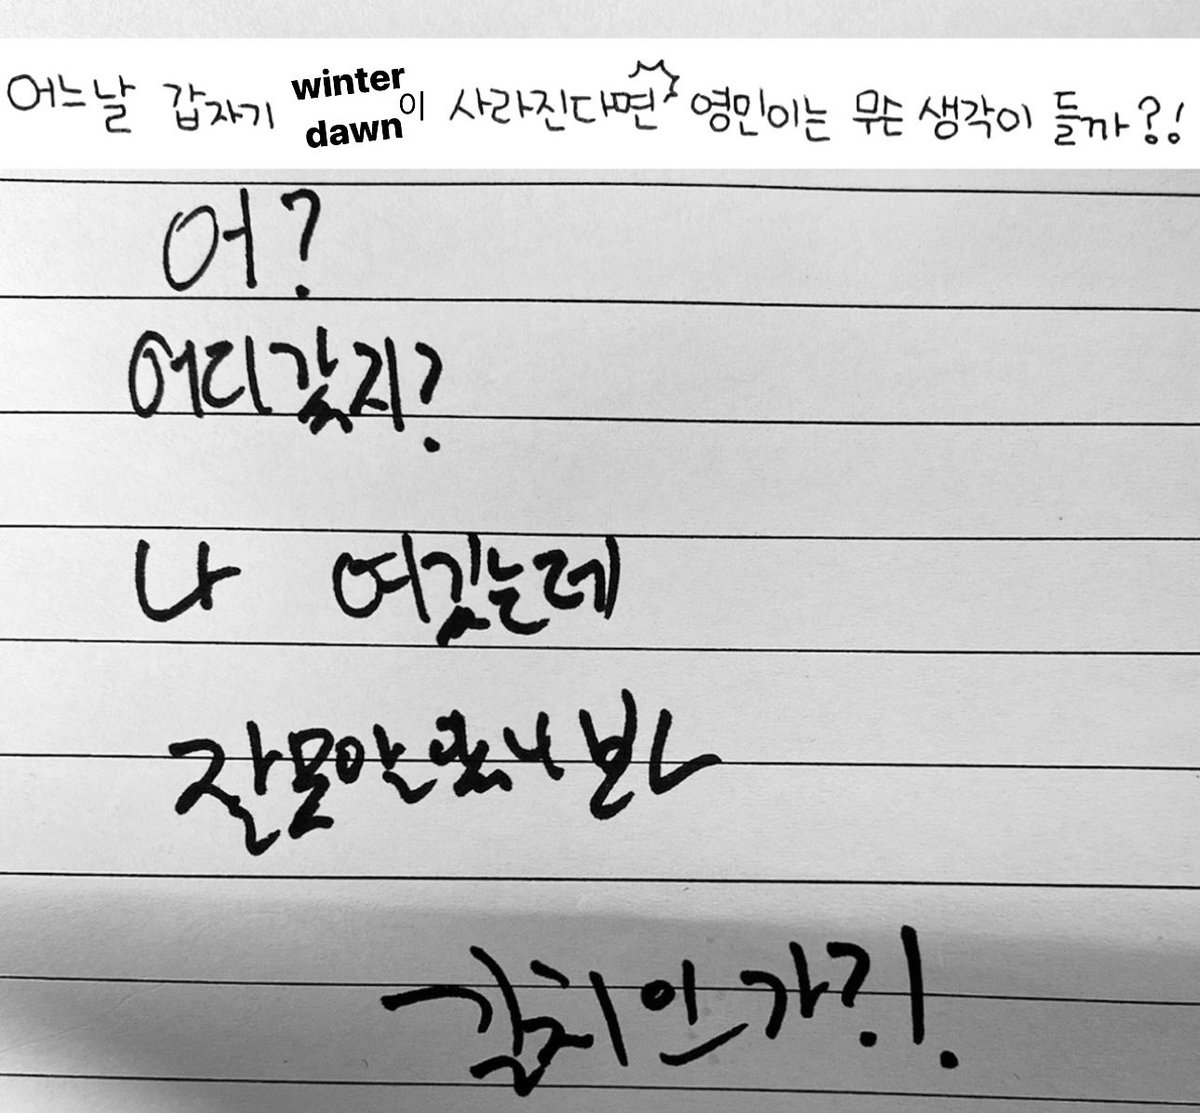 어느날 갑자기 winter dawn이 사라진다면 영민이는 무슨 생각이 들까?!
어?
어디갔지?
나 여깄는데
잘못알았나 보다
갈치인가?!